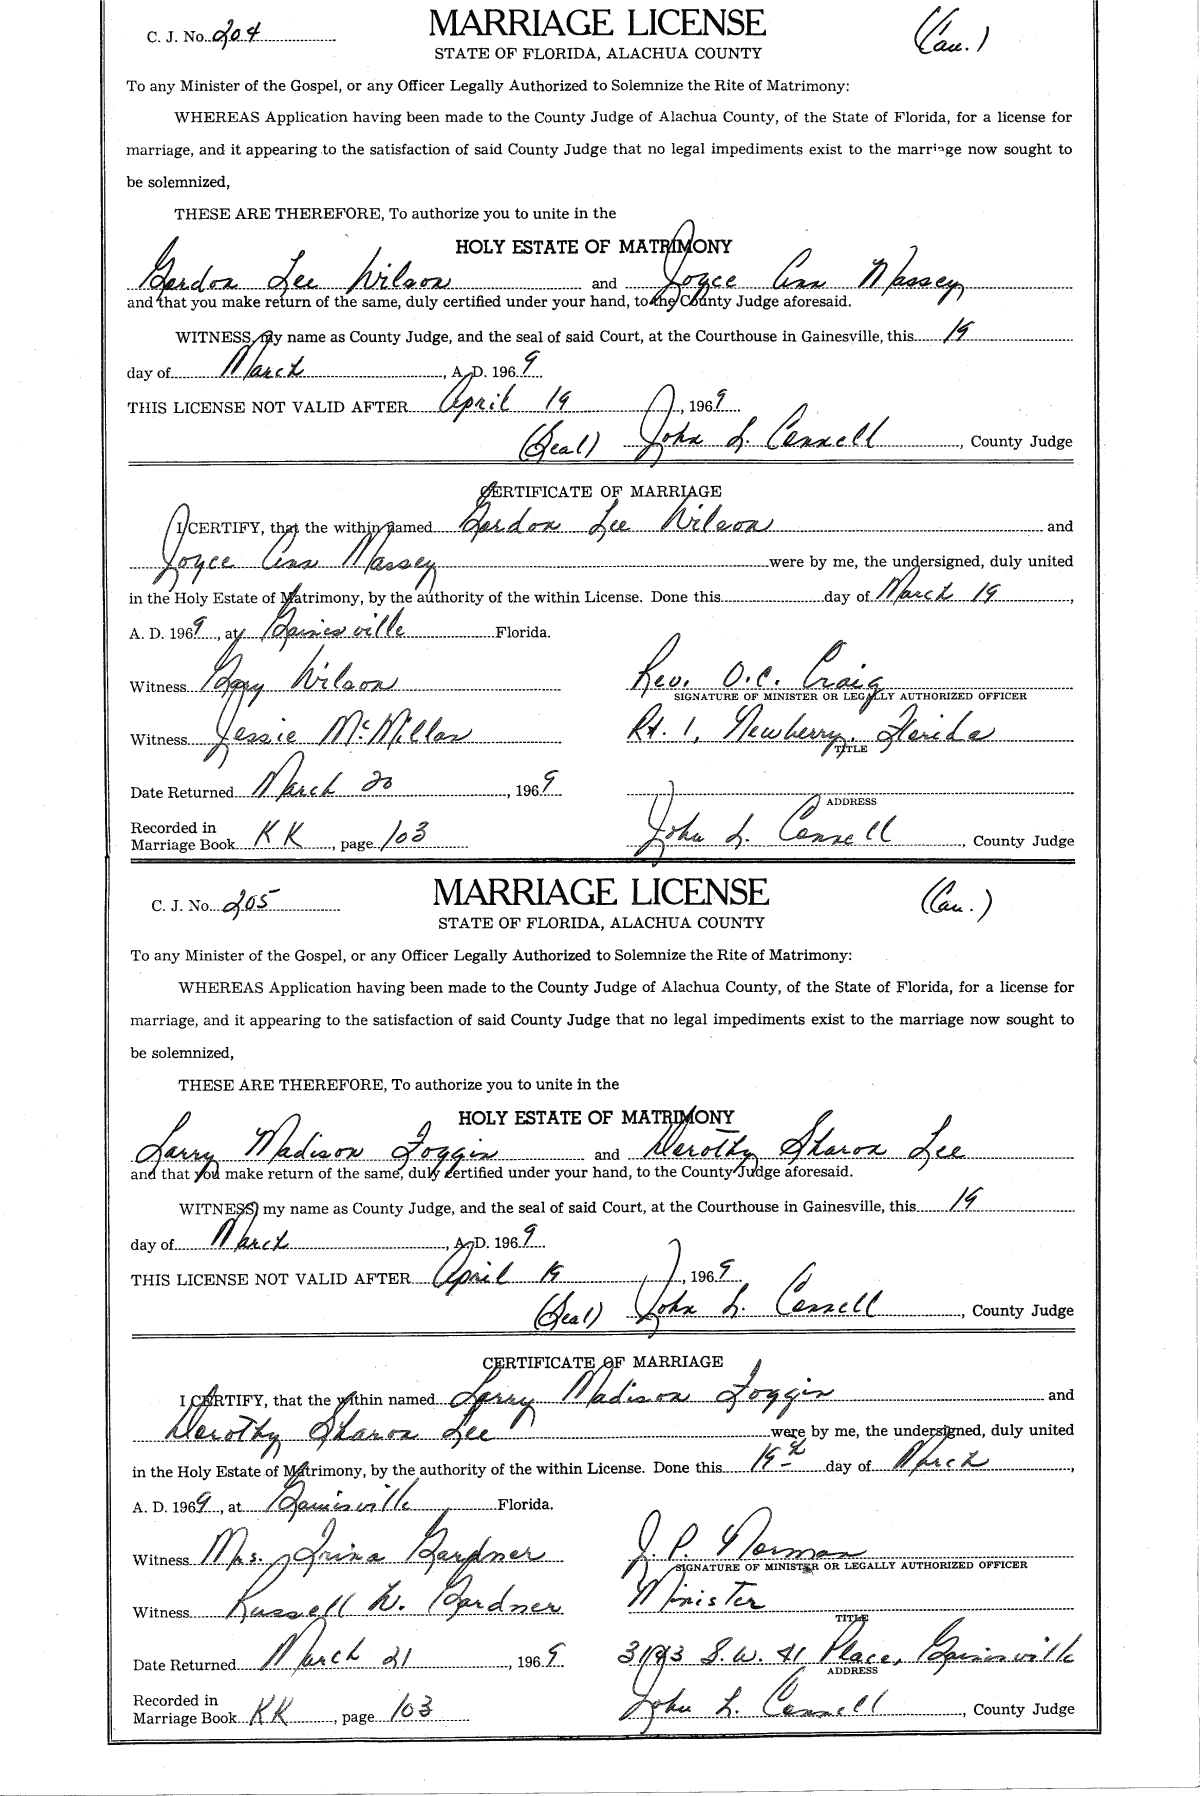 C. J. No. 204
MARRIAGE LICENSE
(Cau.)
STATE OF FLORIDA, ALACHUA COUNTY
To any Minister of the Gospel, or any Officer Legally Authorized to Solemnize the Rite of Matrimony:
WHEREAS Application having been made to the County Judge of Alachua County, of the State of Florida, for a license for
marriage, and it appearing to the satisfaction of said County Judge that no legal impediments exist to the marriage now sought to
be solemnized,
THESE ARE THEREFORE, To authorize you to unite in the
HOLY ESTATE OF MATRIMONY
Gordon Lee Wilson and Joyce Ann Massey
and that you make return of the same, duly certified under your hand, to the County Judge aforesaid.
WITNESS, my name as County Judge, and the seal of said Court, at the Courthouse in Gainesville, this 19
day of March, A. D. 1969
THIS LICENSE NOT VALID AFTER April 19, 1969
(Seal) John L. Connell, County Judge
CERTIFICATE OF MARRIAGE
I CERTIFY, that the within named Gordon Lee Wilson and
Joyce Ann Massey were by me, the undersigned, duly united
in the Holy Estate of Matrimony, by the authority of the within License. Done this day of March 19,
A. D. 1969, at Gainesville Florida.
Witness Gary Wilson Rev. O.C. Craig
SIGNATURE OF MINISTER OR LEGALLY AUTHORIZED OFFICER
Witness Jessie McMillan Rt. 1, Newberry, Florida
TITLE
Date Returned March 20, 1969
ADDRESS
Recorded in
Marriage Book KK, page 103 John L. Connell, County Judge
C. J. No. 205
MARRIAGE LICENSE
(Cau.)
STATE OF FLORIDA, ALACHUA COUNTY
To any Minister of the Gospel, or any Officer Legally Authorized to Solemnize the Rite of Matrimony:
WHEREAS Application having been made to the County Judge of Alachua County, of the State of Florida, for a license for
marriage, and it appearing to the satisfaction of said County Judge that no legal impediments exist to the marriage now sought to
be solemnized,
THESE ARE THEREFORE, To authorize you to unite in the
HOLY ESTATE OF MATRIMONY
Larry Madison Foggin and Dorothy Sharon Lee
and that you make return of the same, duly certified under your hand, to the County Judge aforesaid.
WITNESS, my name as County Judge, and the seal of said Court, at the Courthouse in Gainesville, this 19
day of March, A. D. 1969
THIS LICENSE NOT VALID AFTER April 19, 1969
(Seal) John L. Connell, County Judge
CERTIFICATE OF MARRIAGE
I CERTIFY, that the within named Larry Madison Foggin and
Dorothy Sharon Lee were by me, the undersigned, duly united
in the Holy Estate of Matrimony, by the authority of the within License. Done this 19th day of March,
A. D. 1969, at Gainesville Florida.
Witness Mrs. Irina Gardner J. P. Norman
SIGNATURE OF MINISTER OR LEGALLY AUTHORIZED OFFICER
Witness Russell W. Gardner Minister
TITLE
Date Returned March 21, 1969 S.W. 41 Place, Gainesville
ADDRESS
Recorded in
Marriage Book KK, page 103 John L. Connell, County Judge